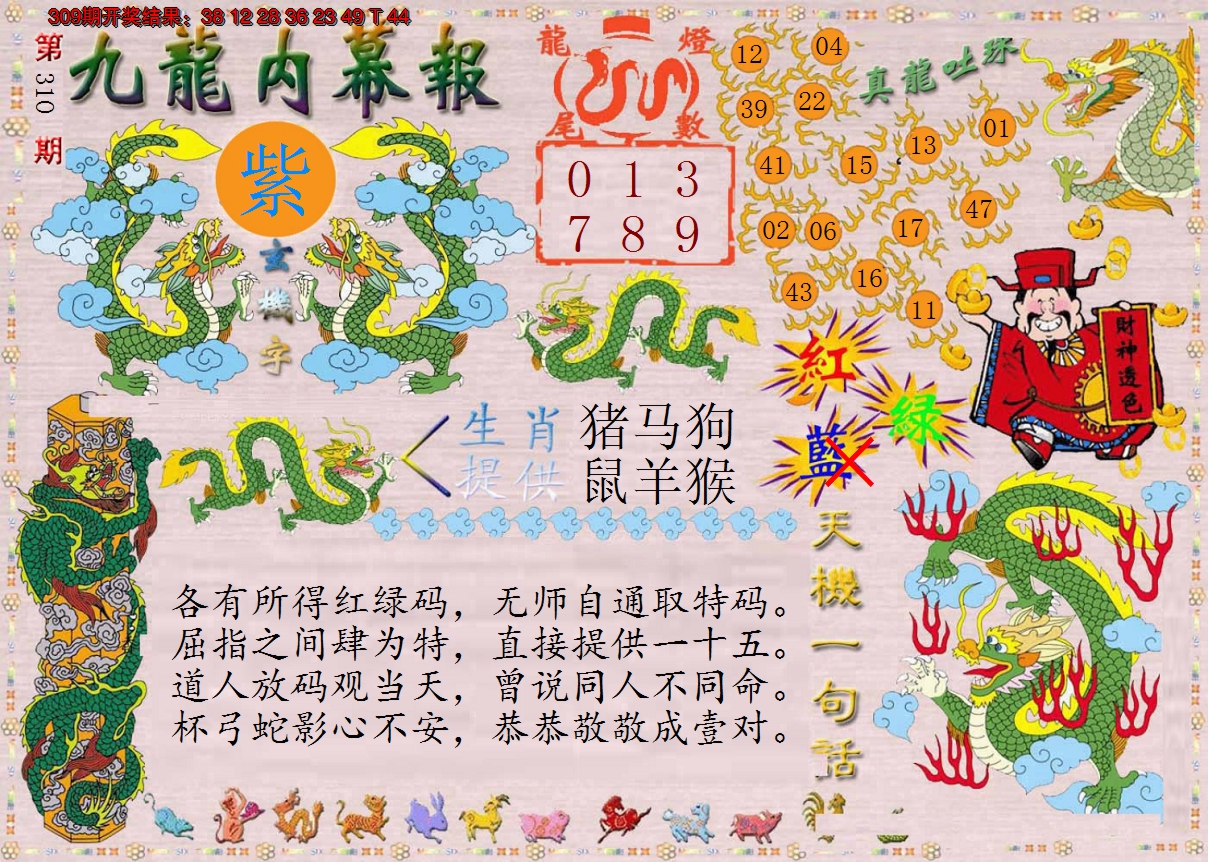 309期开奖结果：38 12 28 36 23 49 T 44
第310期
九龍内幕報
龍燈尾數
0 1 3
7 8 9
真龍吐珠
12 04
39 22
13 01
41 15
47
02 06 17
16
43 11
紫
玄機字
財神透色
紅
绿
藍
生肖 猪马狗
提供 鼠羊猴
天機一句话
各有所得红绿码，无师自通取特码。
屈指之间肆为特，直接提供一十五。
道人放码观当天，曾说同人不同命。
杯弓蛇影心不安，恭恭敬敬成壹对。